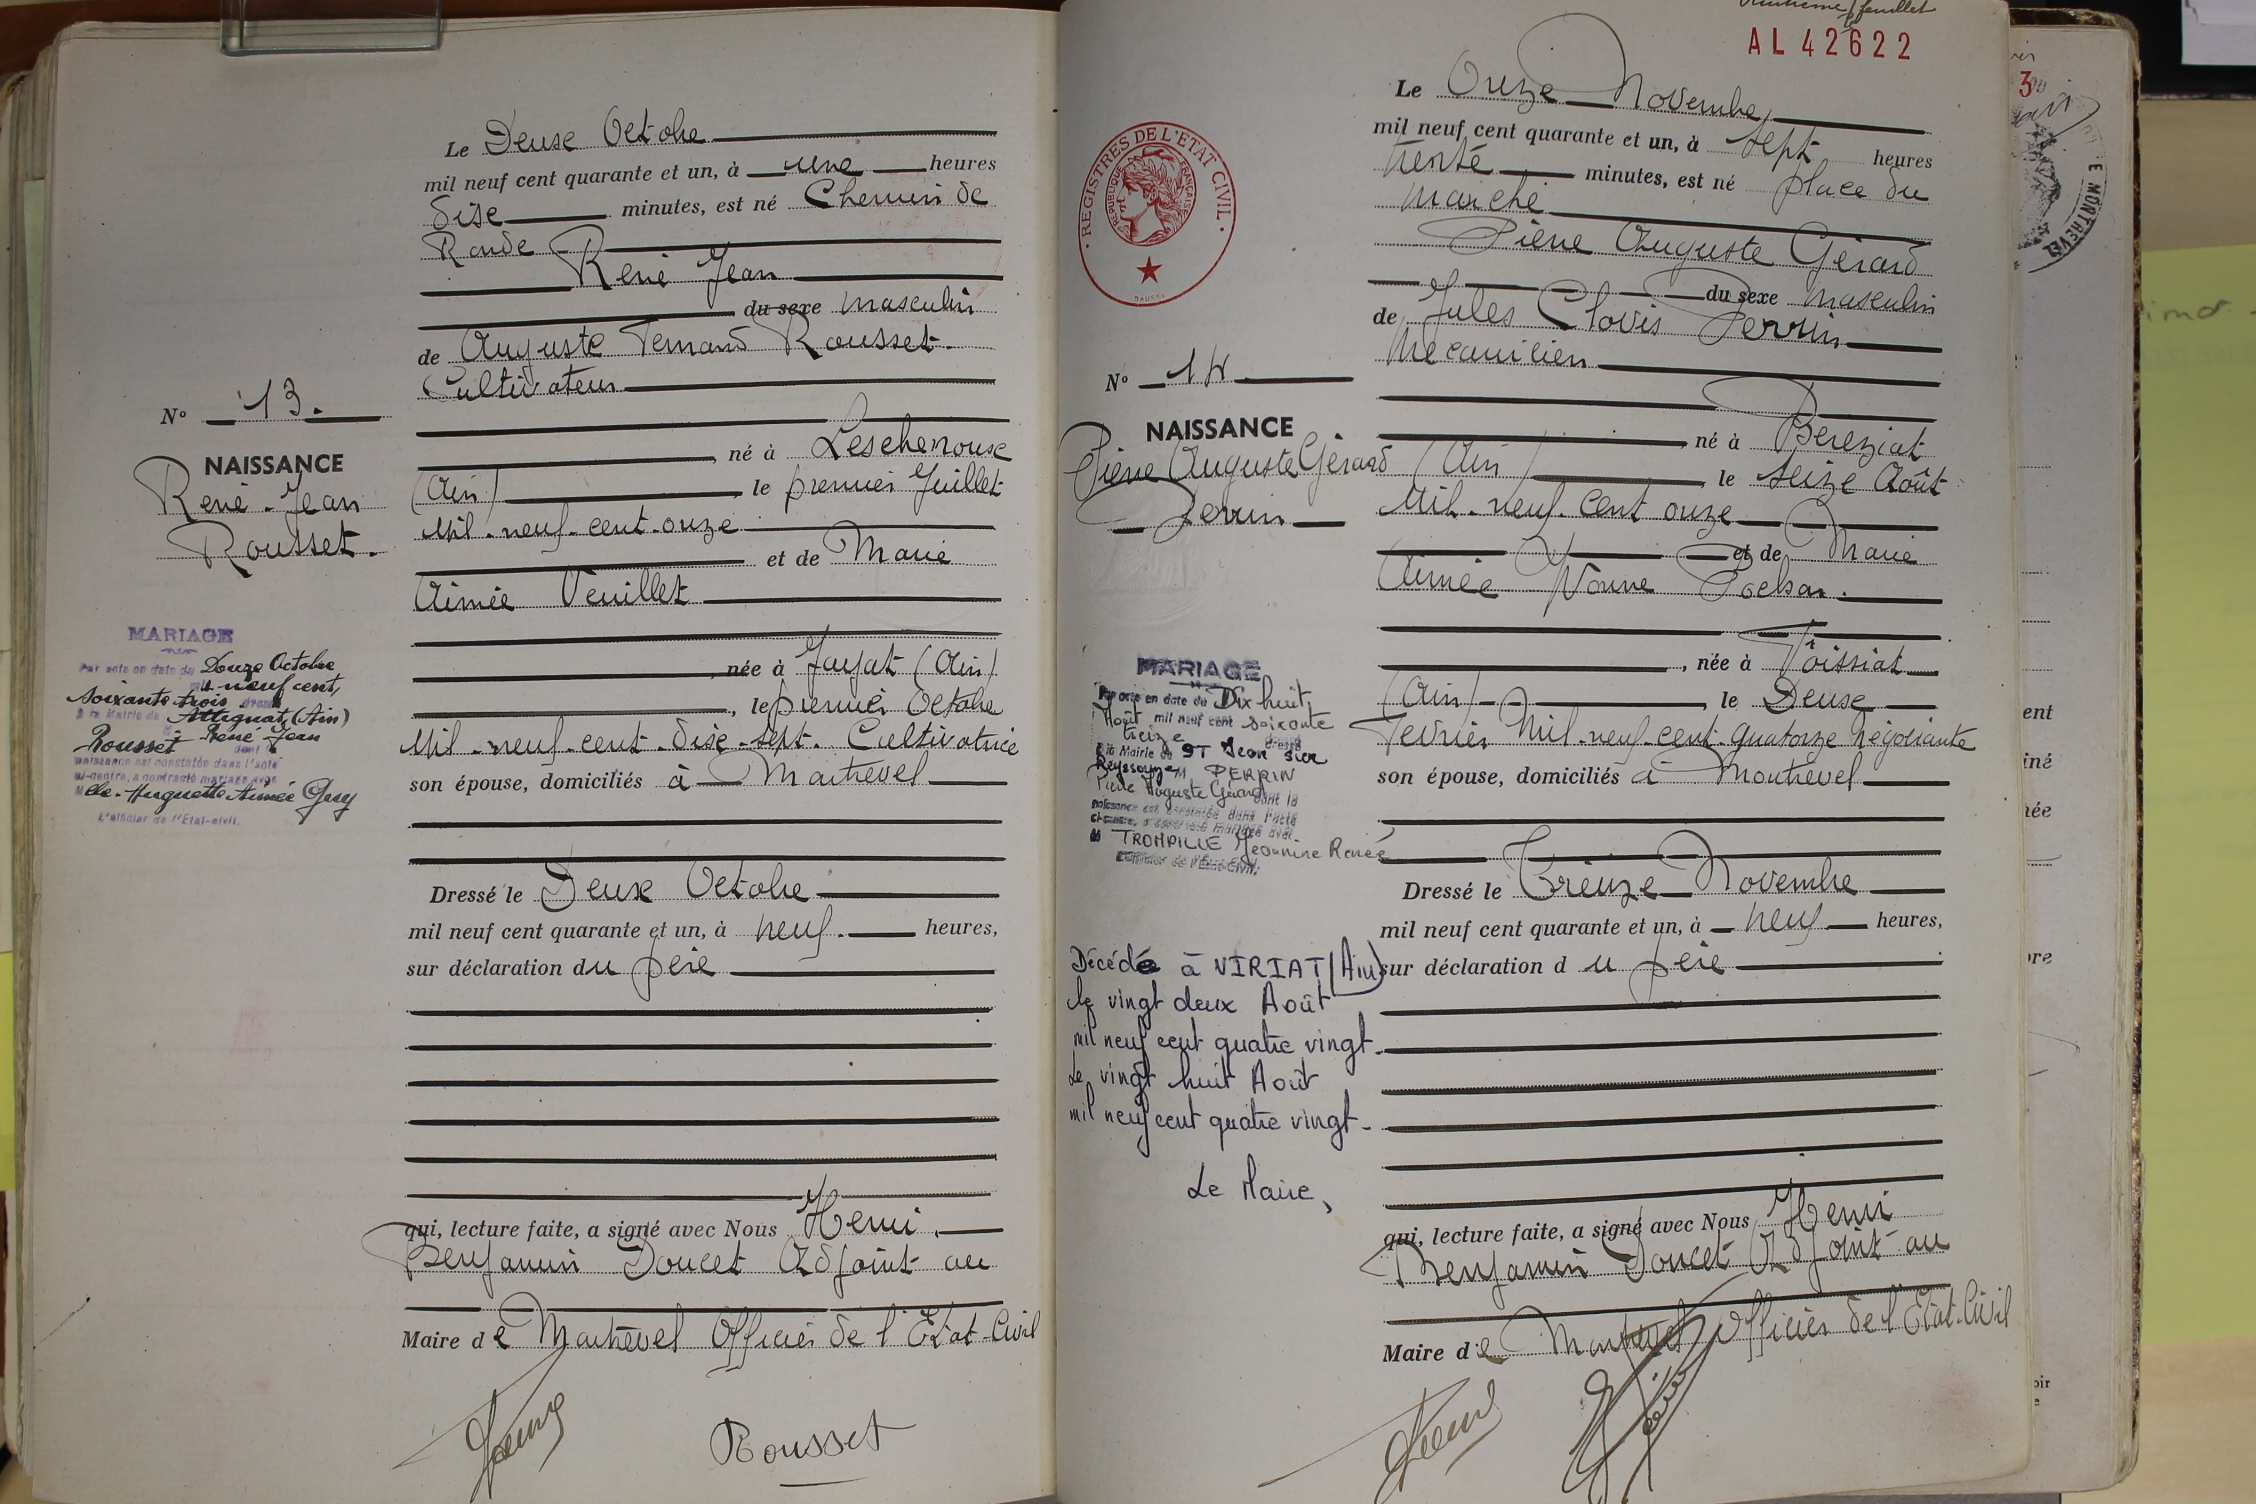 Le Deuxe Octobre
mil neuf cent quarante et un, à une heures
dixe minutes, est né Chemin de
Ronde
René Jean
du sexe masculin
de Auguste Fernand Rousset.
Cultivateur
né à Leschenoux
(Ain) , le premier Juillet
Mil-neuf-cent-onze
et de Marie
Aimée Veuillet
née à Jayat (Ain)
, le premier Octobre
Mil-neuf-cent-dixe-sept. Cultivatrice
son épouse, domiciliés à Montrevel
Dressé le Deuxe Octobre
mil neuf cent quarante et un, à neuf. heures,
sur déclaration du père
qui, lecture faite, a signé avec Nous Henri
Benjamin Doucet Adjoint au
Maire de Montrevel Officier de l'Etat-Civil
Rousset
N° 13.
NAISSANCE
René-Jean
Rousset.
MARIAGE
Par acte en date du Douze Octobre
mil neuf cent
soixante trois dressé
à la Mairie de Attignat (Ain)
Rousset René Jean
dont la
naissance est constatée dans l'acte
ci-contre, a contracté mariage avec
Huguette Aimée
L'officier de l'Etat-civil.
feuillet
AL 42622
Le Onze Novembre
mil neuf cent quarante et un, à sept heures
trente minutes, est né place du
Marché
Pierre Auguste Gérard
du sexe masculin
de Jules Clovis Perrin
Mécanicien
né à Béréziat
(Ain) , le seize Août
Mil-neuf-cent onze
et de Marie
Aimée Yvonne Pochon.
, née à Foissiat
(Ain) le Deuxe
Fevrier Mil-neuf-cent-quatorze négociante
son épouse, domiciliés à Montrevel
Dressé le Treize Novembre
mil neuf cent quarante et un, à neuf heures,
sur déclaration du père
qui, lecture faite, a signé avec Nous Henri
Benjamin Doucet Adjoint au
Maire de Montrevel Officier de l'Etat-Civil
REGISTRES DE L'ETAT CIVIL
REPUBLIQUE FRANÇAISE
N° 14
NAISSANCE
Pierre Auguste Gérard
Perrin
MARIAGE
Par acte en date du Dix huit
Août mil neuf cent soixante
treize dressé
à la Mairie de ST Jean sur
Reyssouze M PERRIN
Pierre Auguste Gérard dont la
naissance est constatée dans l'acte
ci-contre, a contracté mariage avec
M TROMPILLE Jeannine Renée
L'officier de l'Etat-Civil:
Décédé à VIRIAT (Ain)
le vingt deux Août
mil neuf cent quatre vingt.
Le vingt huit Août
mil neuf cent quatre vingt.
Le Maire,
3
DE MONTREVEL